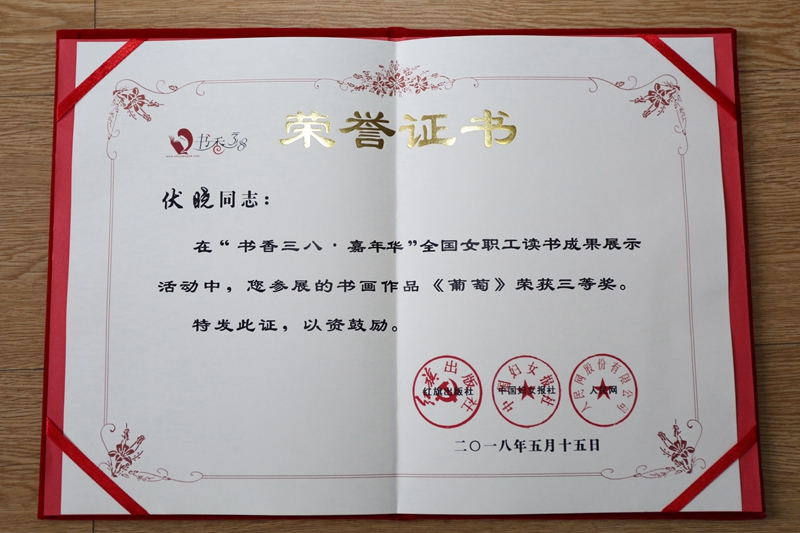 荣誉证书
书香三八
伏晓同志：
在“书香三八·嘉年华”全国女职工读书成果展示
活动中，您参展的书画作品《葡萄》荣获三等奖。
特发此证，以资鼓励。
红旗出版社
红旗出版社
中国妇女报社
中国妇女报社
人民网股份有限公司
人民网
二〇一八年五月十五日